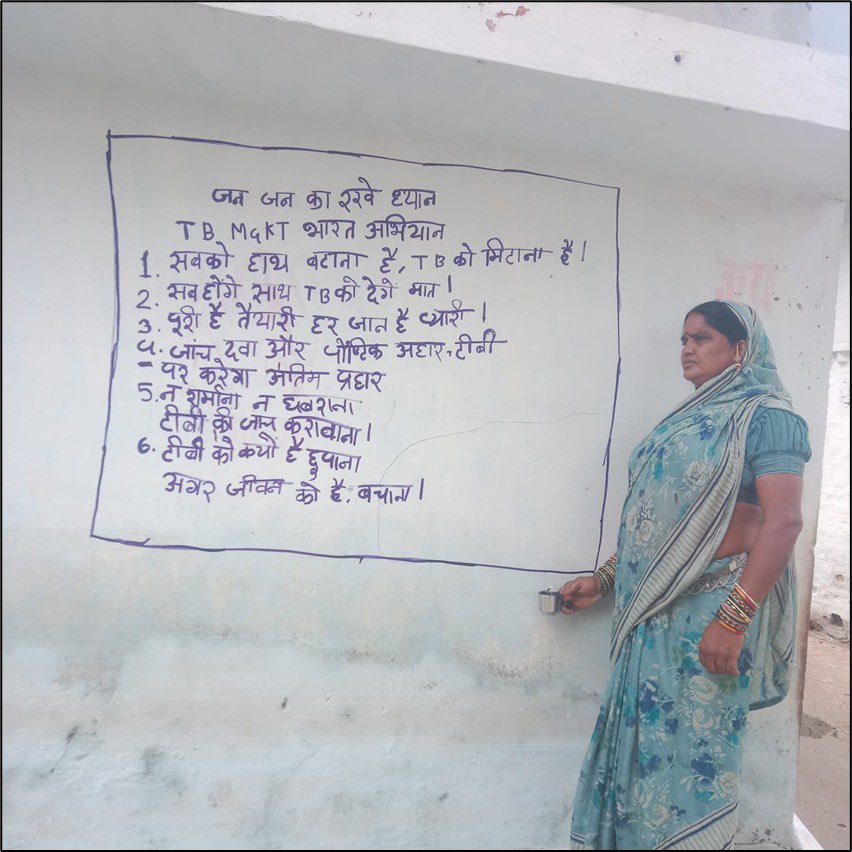 जन जन का रखे ध्यान
TB MGKT भारत अभियान
1. सबको हाथ बटाना है, TB को मिटाना है।
2. सब होंगे साथ TB को देगे मात।
3. पूरी है तैयारी हर जान है प्यारी।
4. जांच दवा और पौष्टिक अहार, टीबी
- पर करेगा अंतिम प्रहार
5. न शर्माना न घबराना
टीबी की जांच करावाना।
6. टीबी को क्यों है छुपाना
अगर जीवन को है. बचाना।